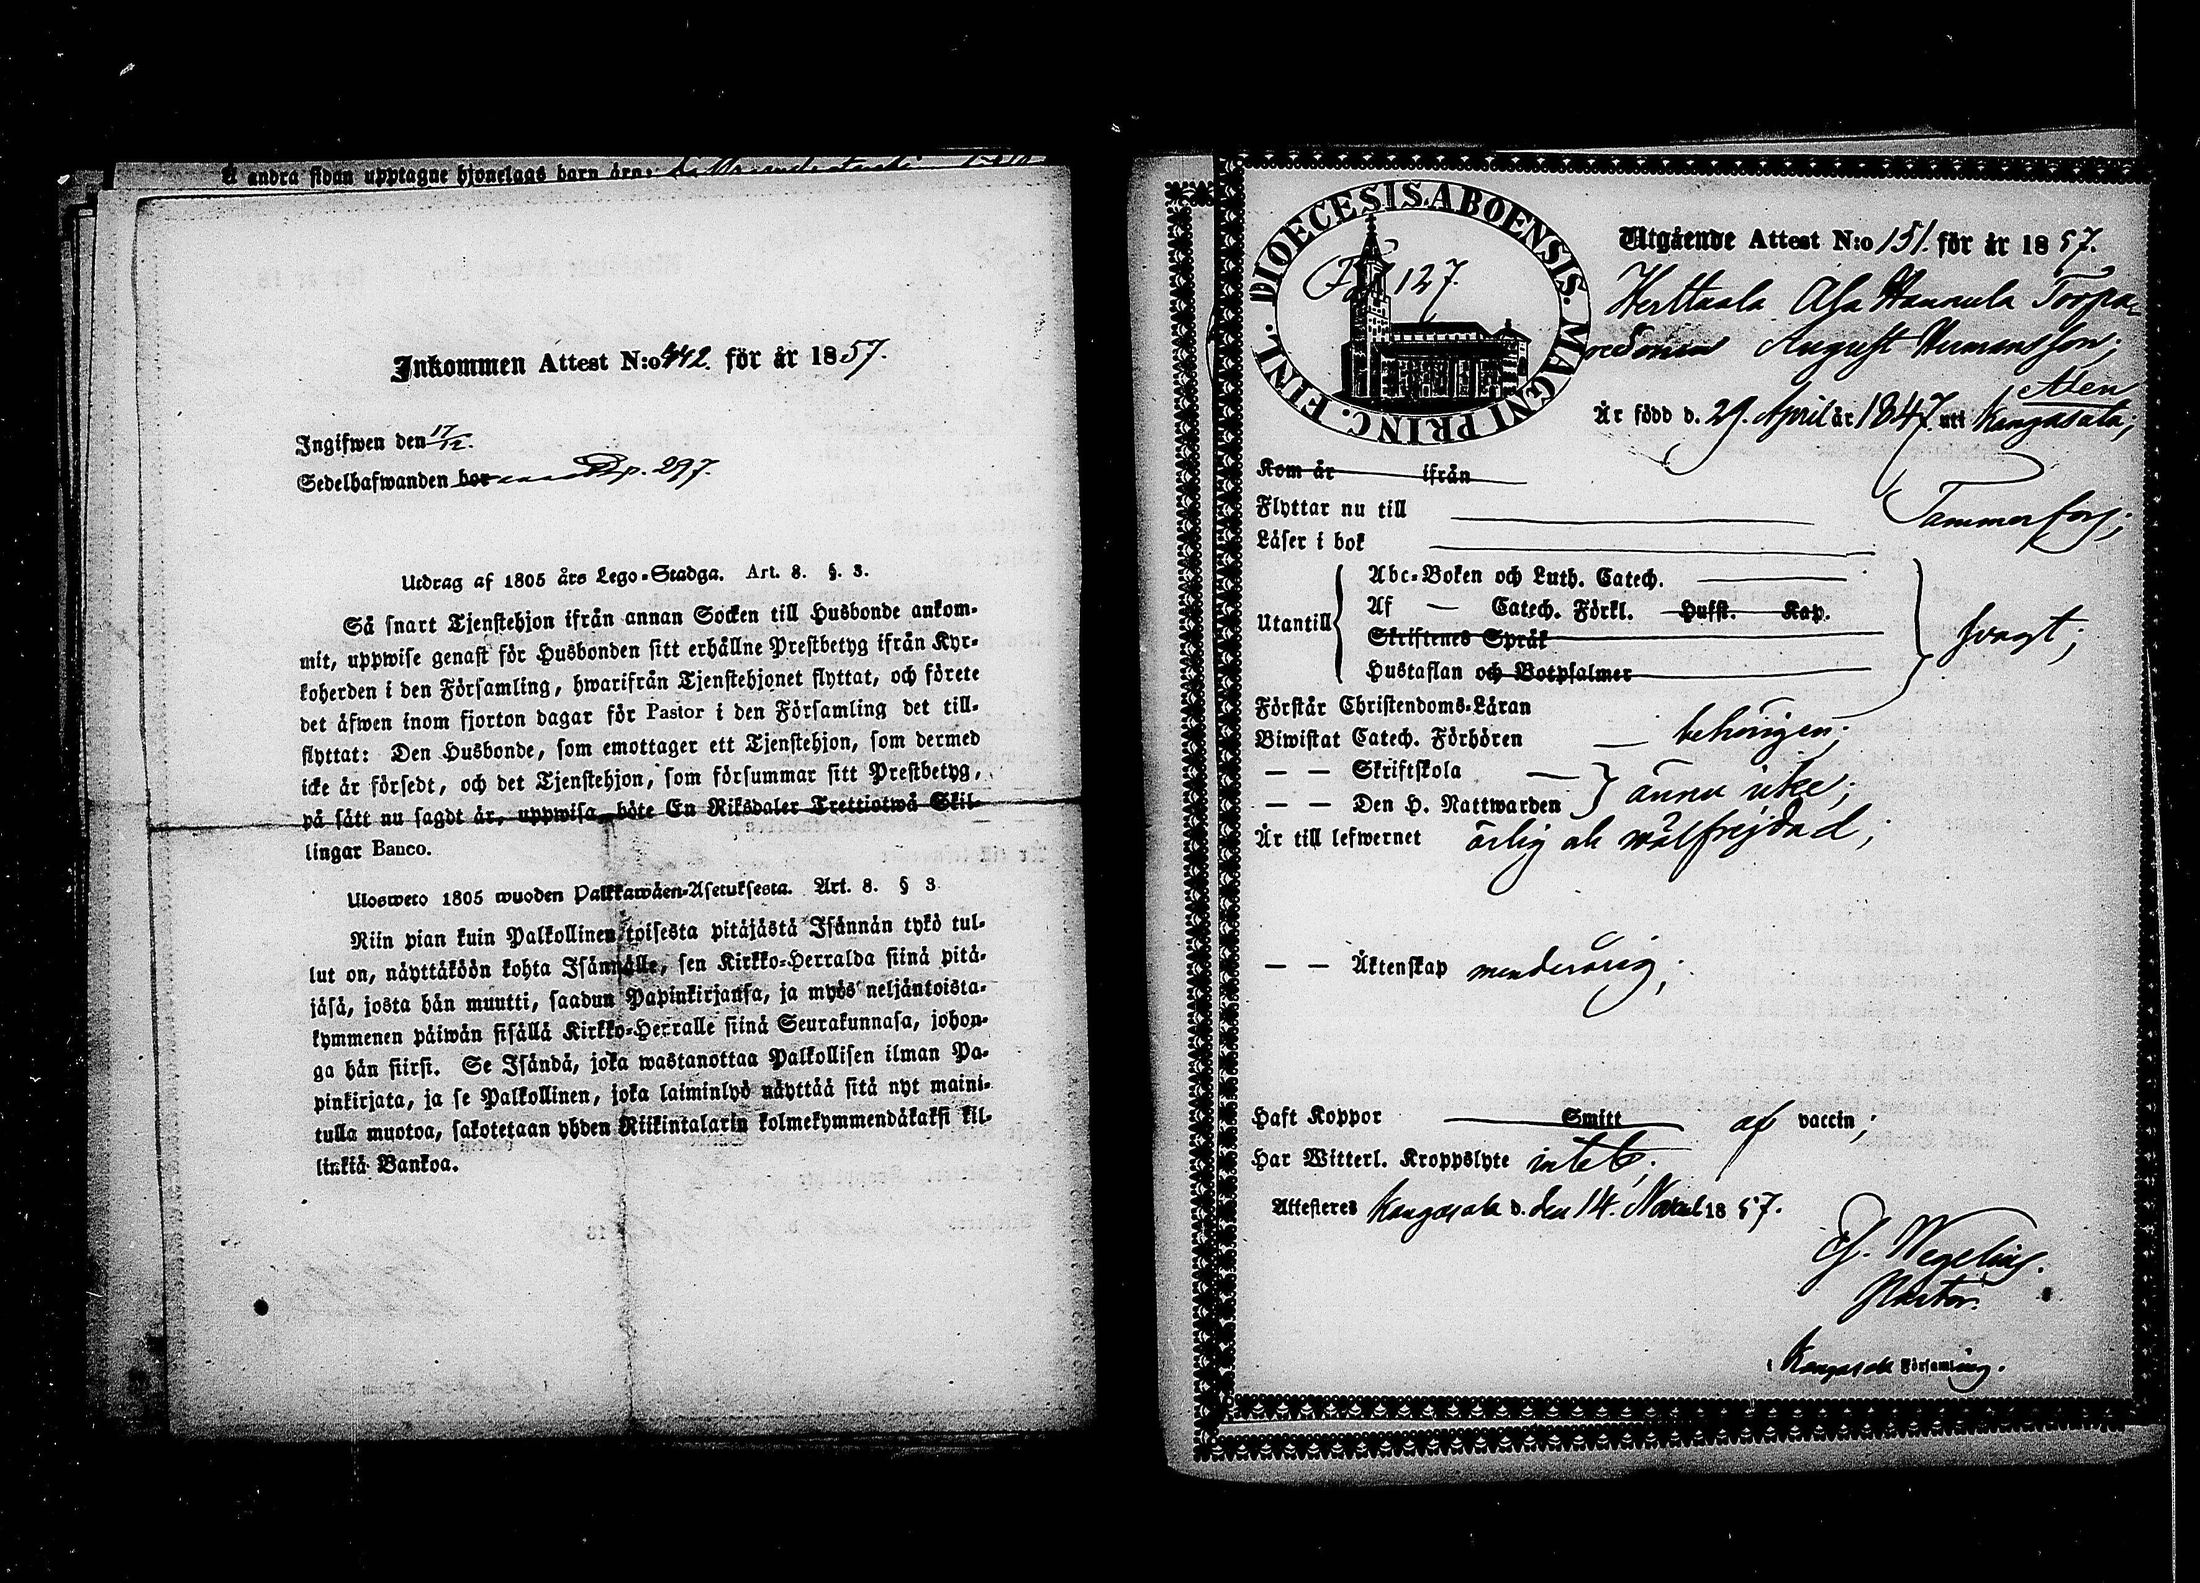 Å andra sidan upptagne hjonelags barn äro:
Inkommen Attest N:o 442. för år 1857.
Ingifwen den 17/12.
Sedelhafwanden bor p. 297.
Utdrag af 1805 års Lego-Stadga. Art. 8. §. 3.
Så snart Tjenstehjon ifrån annan Socken till Husbonde ankom-
mit, uppwise genast för Husbonden sitt erhållne Prestbetyg ifrån Kyr-
koherden i den Församling, hwarifrån Tjenstehjonet flyttat, och förete
det äfwen inom fjorton dagar för Pastor i den Församling det till-
flyttat: Den Husbonde, som emottager ett Tjenstehjon, som dermed
icke är försedt, och det Tjenstehjon, som försummar sitt Prestbetyg,
på sätt nu sagdt är, uppwisa, böte En Riksdaler Trettiotwå Skil-
lingar Banco.
Ulosweto 1805 wuoden Palkkawäen-Asetuksesta. Art. 8. § 3
Niin pian kuin Palkollinen toisesta pitäjästä Isännän tykö tul-
lut on, näyttäköön kohta Isännälle, sen Kirkko-Herralda siinä pitä-
jäsä, josta hän muutti, saadun Papinkirjansa, ja myös neljäntoista-
kymmenen päiwän sisällä Kirkko-Herralle siinä Seurakunnasa, johon-
ga hän siirsi. Se Isändä, joka wastanottaa Palkollisen ilman Pa-
pinkirjata, ja se Palkollinen, joka laiminlyö näyttää sitä nyt maini-
tulla muotoa, sakotetaan yhden Riikintalarin kolmekymmendäkaksi kil-
linkiä Bankoa.
DIOECESIS. ABOENSIS. MAGNI PRINC. FINL.
127.
Utgående Attest N:o 151. för år 1857.
Herttuala Ala Hannula Torpa-
redonen August Hermansson;
Är född d. 29. April år 1847. uti Kangasala;
Kom år ifrån
Flyttar nu till Tammerfors;
Läser i bok
Utantill
Abc-Boken och Luth. Catech.
Af — Catech. Förkl. Hufst. Kap.
Skriftenes Språk
Hustaflan och Botpsalmer
svagt;
Förstår Christendoms-Läran
Biwistat Catech. Förhören — behörigen;
— — Skriftskola —
— — Den H. Nattwarden
ännu icke;
Är till lefwernet ärlig ok wälfrejdad;
— — Äktenskap minderårig;
Haft Koppor Smitt af vaccin;
Har Witterl. Kroppslyte intet;
Attesteres Kangasala d. den 14. Novemb 1857.
Wegelius.
Pastor.
i Kangasala Församling.